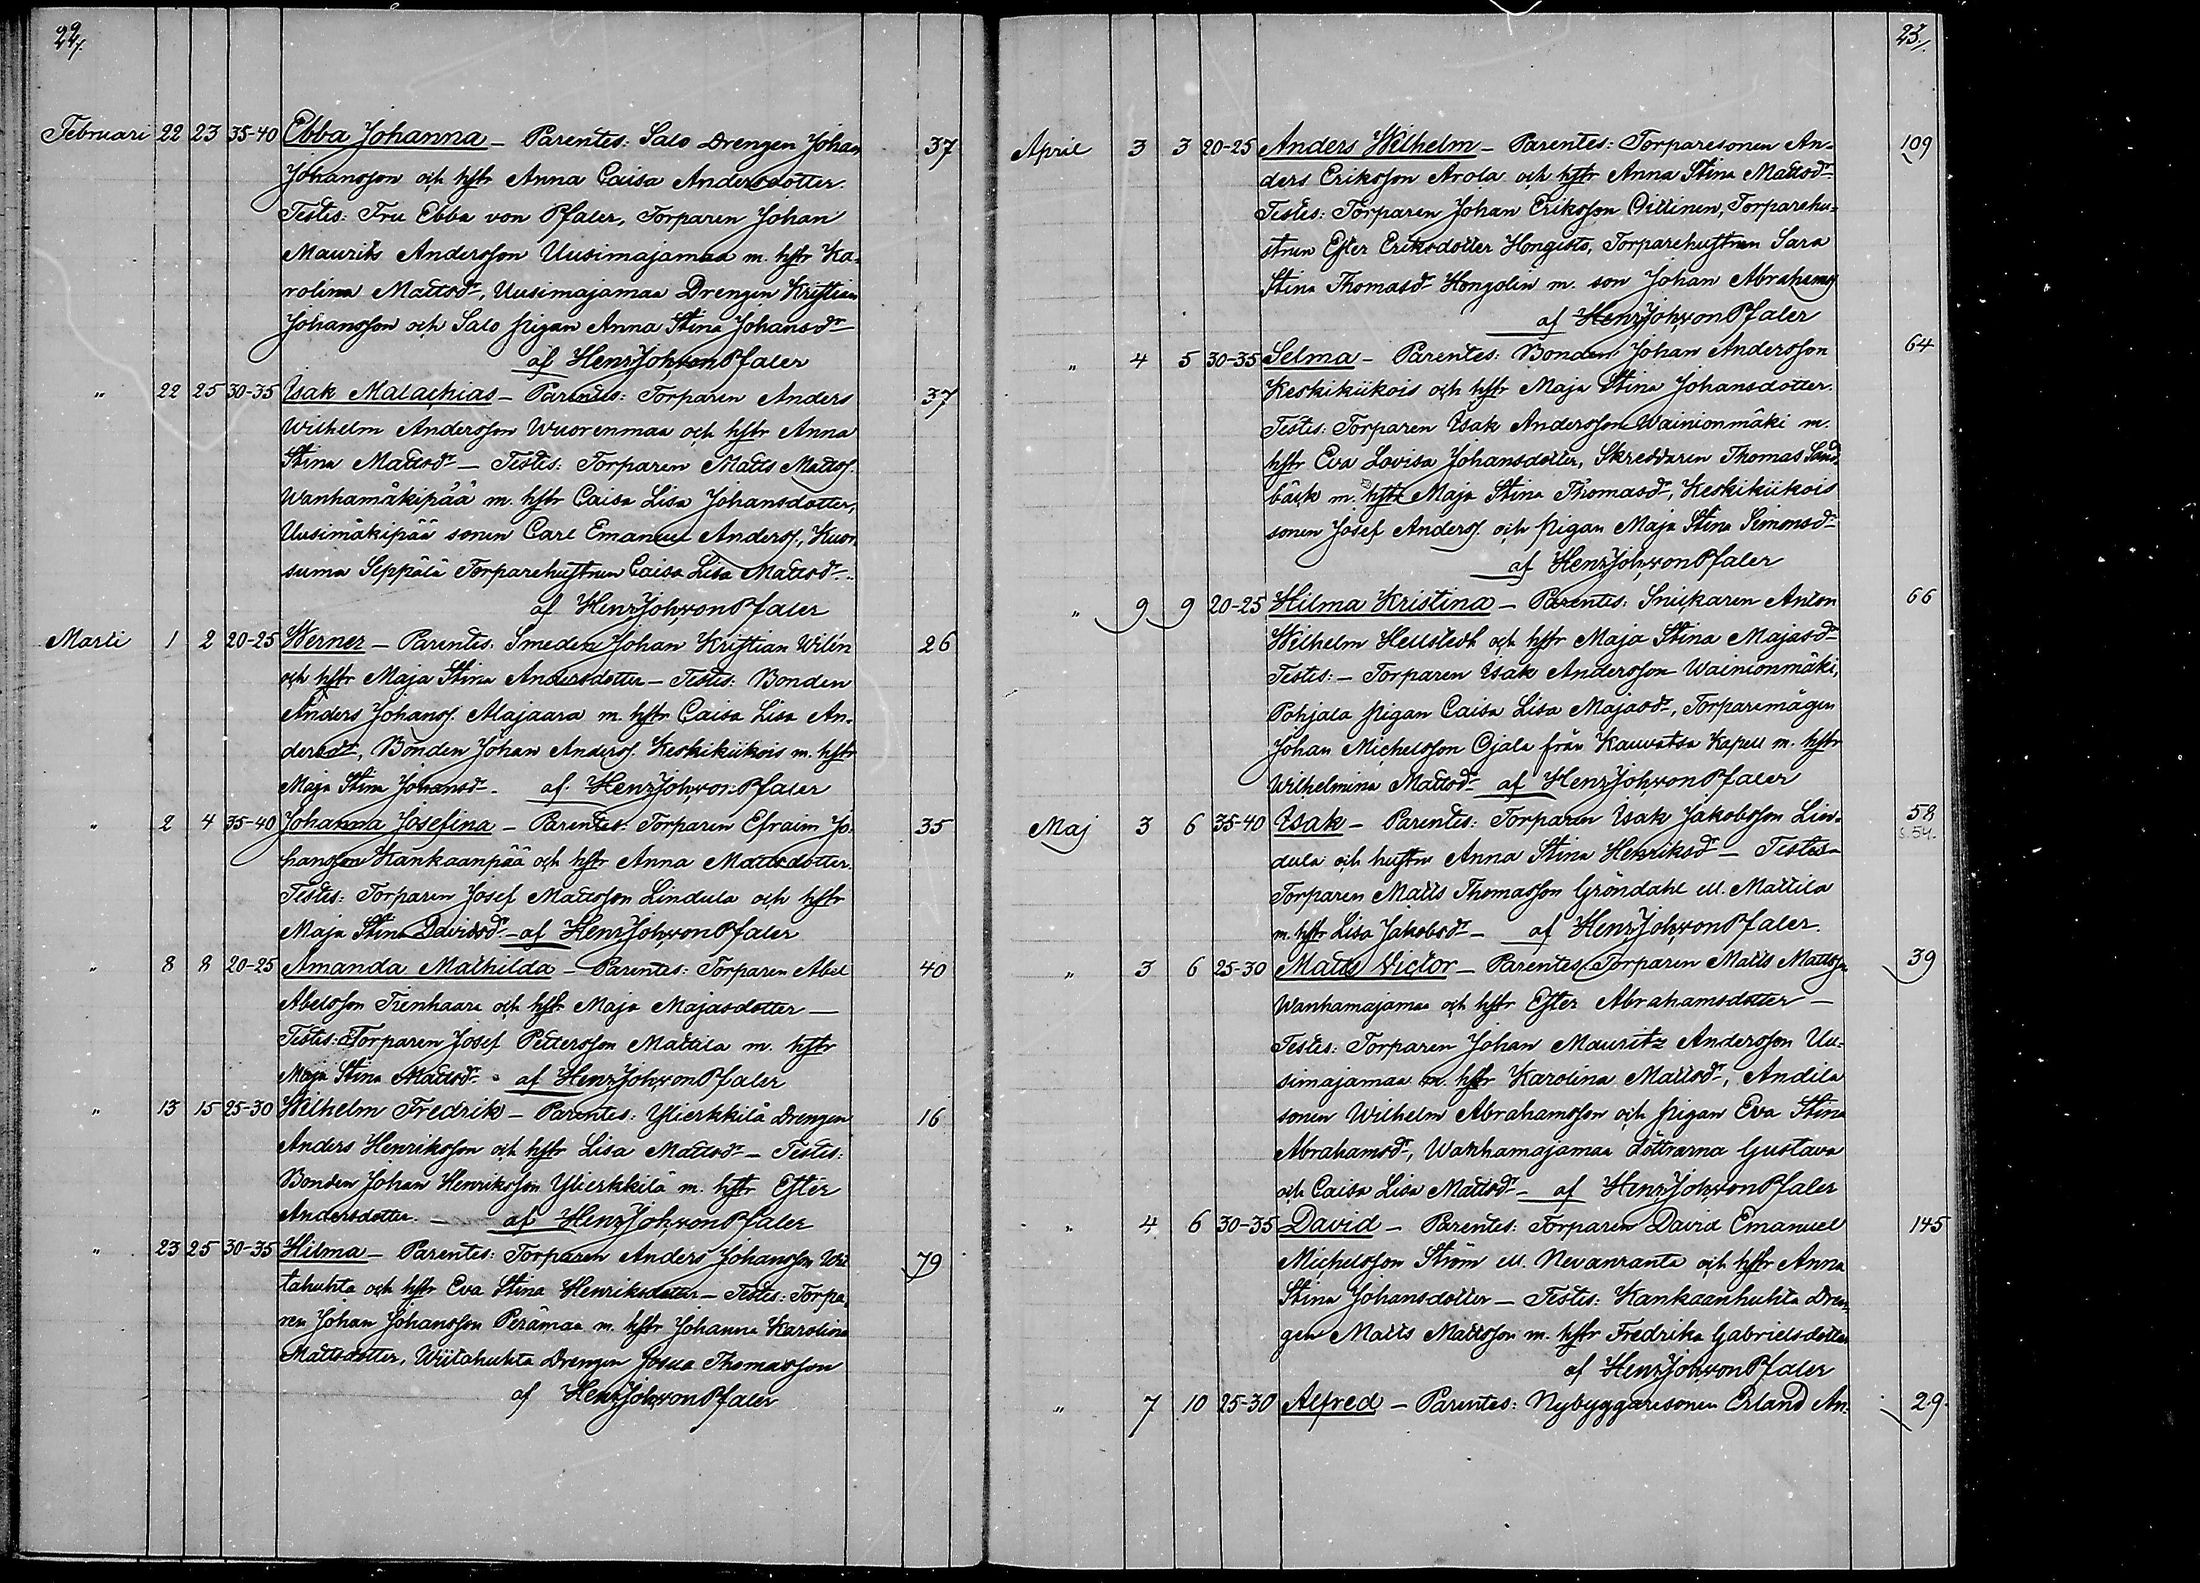 22/.
Februari 22 23 35-40 Ebba Johanna - Parentes: Salo Drengen Johan 37
Johansson och hstr Anna Caisa Andersdotter.
Testes: Fru Ebba von Pfaler, Torparen Johan
Maurits Andersson Uusimajamaa m. hstr Ka-
rolina Mattsdr, Uusimajamaa Drengen Kristian
Johansson och Salo pigan Anna Stina Johansdr
af HenrJohvonPfaler
" 22 25 30-35 Isak Malachias - Parentes: Torparen Anders 37
Wilhelm Andersson Wuorenmaa och hstr Anna
Stina Mattsdr - Testes: Torparen Matts Mattss.
Wanhamäkipää m. hstr Caisa Lisa Johansdotter,
Uusimäkipää sonen Carl Emanuel Anderss., Kuor-
suma Seppälä Torparehustrun Caisa Lisa Mattsdr.
af HenrJohvonPfaler
Marti 1 2 20-25 Werner - Parentes: Smeden Johan Kristian Wilén 26
och hstr Maja Stina Andersdotter - Testes: Bonden
Anders Johanss. Alajaara m. hstr Caisa Lisa An-
dersdr, Bonden Johan Anderss. Keskikiikois m. hstr
Maja Stina Johansdr. af HenrJohvonPfaler
" 2 4 35-40 Johanna Josefina - Parentes: Torparen Efraim Jo- 35
hansson Kankaanpää och hstr Anna Mattsdotter.
Testes: Torparen Josef Mattsson Lindula och hstr
Maja Stina Davidsdr - af HenrJohvonPfaler
" 8 8 20-25 Amanda Mathilda - Parentes: Torparen Abel 40
Abelsson Tienhaara och hstr Maja Majasdotter -
Testes: Torparen Josef Pettersson Mattila m. hstr
Maja Stina Mattsdr - af HenrJohvonPfaler
" 13 15 25-30 Wilhelm Fredrik - Parentes: Ylierkkilä Drengen 16
Anders Henriksson och hstr Lisa Mattsdr - Testes:
Bonden Johan Henriksson Ylierkkilä m. hstr Ester
Andersdotter. - af HenrJohvonPfaler
" 23 25 30-35 Hilma - Parentes: Torparen Anders Johansson Wii- 79
tahuhta och hstr Eva Stina Henriksdotter - Testes: Torpa-
ren Johan Johansson Perämaa m. hstr Johanna Karolina
Mattsdotter, Wiitahuhta Drengen Josua Thomasson
af HenrJohvonPfaler
23/.
April 3 3 20-25 Anders Wilhelm - Parentes: Torparesonen An- 109
ders Eriksson Arola och hstr Anna Stina Mattsdr
Testes: Torparen Johan Eriksson Oillinen, Torparehu-
strun Ester Eriksdotter Hongisto, Torparehustrun Sara
Stina Thomasdr Hongolin m. son Johan Abrahamss
af HenrJohvonPfaler
" 4 5 30-35 Selma - Parentes: Bonden Johan Andersson 64
Keskikiikois och hstr Maja Stina Johansdotter.
Testes: Torparen Isak Andersson Wainionmäki m.
hstr Eva Lovisa Johansdotter, Skreddaren Thomas Sand-
bäck m. hstr Maja Stina Thomasdr, Keskikiikois
sonen Josef Anderss. och pigan Maja Stina Simonsdr
af HenrJohvonPfaler
" 9 9 20-25 Hilma Kristina - Parentes: Snickaren Anton 66
Wilhelm Hellstedt och hstr Maja Stina Majasdr
Testes: - Torparen Isak Andersson Wainionmäki,
Pohjala pigan Caisa Lisa Majasdr, Torparemågen
Johan Michelsson Ojala från Kauvatsa Kapell m. hstr
Wilhelmina Mattsdr af HenrJohvonPfaler
Maj 3 6 35-40 Isak - Parentes: Torparen Isak Jakobsson Lin- 58
s. 54.
dula och hustru Anna Stina Henriksdr - Testes -
Torparen Matts Thomasson Gröndahl ell. Mattila
m. hstr Lisa Jakobsdr - af HenrJohvonPfaler.
" 3 6 25-30 Matts Victor - Parentes: Torparen Matts Mattsson 39
Wanhamajamaa och hstr Ester Abrahamsdotter -
Testes: Torparen Johan Mauritz Andersson Uu-
simajamaa m. hstr Karolina Mattsdr, Andila
sonen Wilhelm Abrahamsson och pigan Eva Stina
Abrahamsdr, Wanhamajamaa döttrarna Gustava
och Caisa Lisa Mattsdr - af HenrJohvonPfaler
" 4 6 30-35 David - Parentes: Torparen David Emanuel 145
Michelsson Ström ell. Nevanranta och hstr Anna
Stina Johansdotter - Testes: Kankaanhuhta Dren-
gen Matts Mattsson m. hstr Fredrika Gabrielsdotter
af HenrJohvonPfaler
" 7 10 25-30 Alfred - Parentes: Nybyggaresonen Erland An- 29